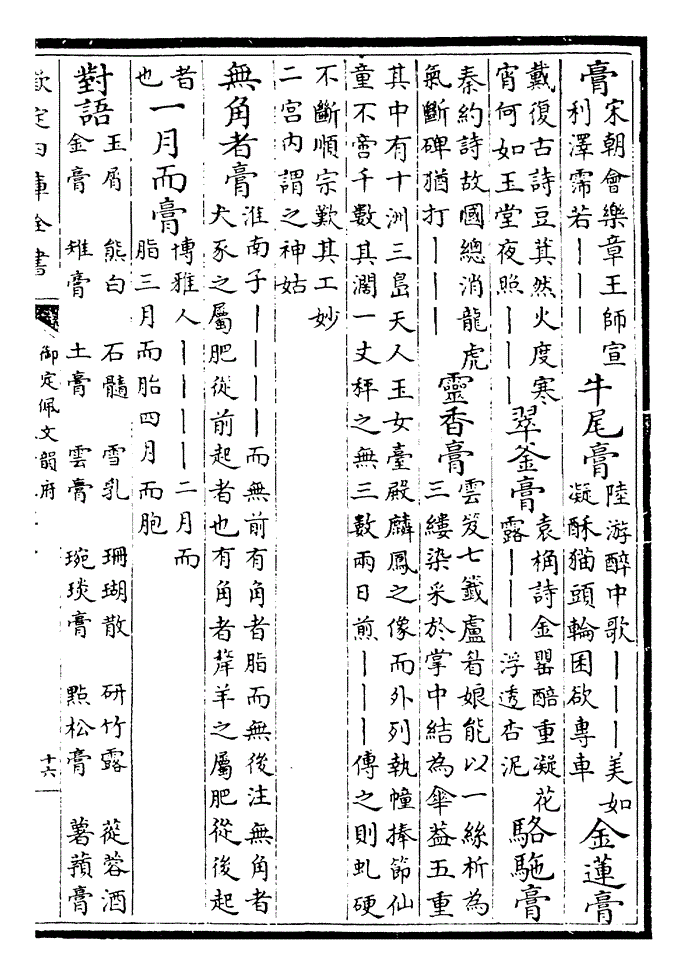 膏宋朝會樂章王師宣
利澤霈若｜｜｜
牛尾膏陸游醉中歌｜｜｜美如
凝酥猫頭輪囷欲專車
金蓮膏
戴復古詩豆萁然火度寒
宵何如玉堂夜照｜｜｜
翠釜膏袁桷詩金罌醅重凝花
露｜｜｜浮透杏泥
駱駞膏
秦約詩故國總消龍虎
氣斷碑猶打｜｜｜
靈香膏雲笈七籖盧眉娘能以一絲析為
三縷染采於掌中結為傘葢五重
其中有十洲三島天人玉女臺殿麟鳳之像而外列執幢捧節仙
童不啻千數其濶一丈秤之無三數兩日煎｜｜｜傅之則虬硬
不斷順宗歎其工妙
二宮内謂之神姑
無角者膏淮南子｜｜｜｜而無前有角者脂而無後注無角者
犬豕之屬肥從前起者也有角者羊之屬肥從後起
者
也
一月而膏博雅人｜｜｜｜二月而
脂三月而胎四月而胞
對語玉屑 熊白 石髓 雪乳 珊瑚散 研竹露 蓯蓉酒
金膏 雉膏 土膏 雲膏 琬琰膏 點松膏 薯蕷膏
欽定四庫全書
御定佩文韻府
十六